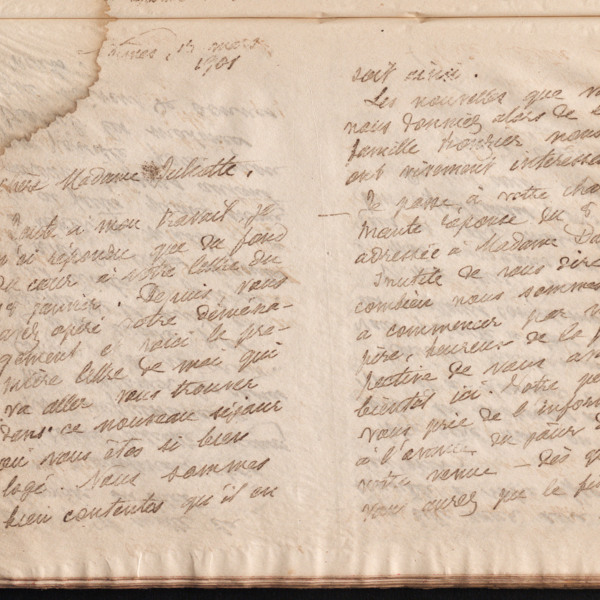 13 mars
1901
Madame Juliette,
Toute à mon travail, je
n'ai répondu que du fond
du cœur à votre lettre du
janvier. Depuis, vous
avez opéré votre déména-
gement et voici la pre-
mière lettre de moi qui
va aller vous trouver
dans ce nouveau séjour
où vous êtes si bien
logé. Nous sommes
bien contentes qu'il en
soit ainsi.
Les nouvelles que v
nous donniez alors de
famille nous
ont vivement intéressé
Je passe à votre cha
mante réponse du 8
adressée à Madame
Inutile de vous dire
combien nous sommes
à commencer par
père, heureux de la
pective de vous
bientôt ici. Notre
vous prie de l'infor
à l'avance du jour d
votre venue — dès q
vous aurez pu le